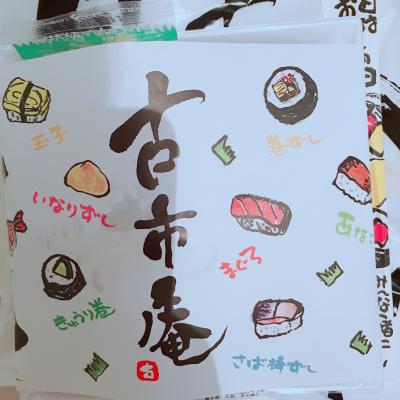 古市庵
古
玉子
いなりずし
きゅうり巻
巻ずし
まぐろ
さば棒ずし
あなご